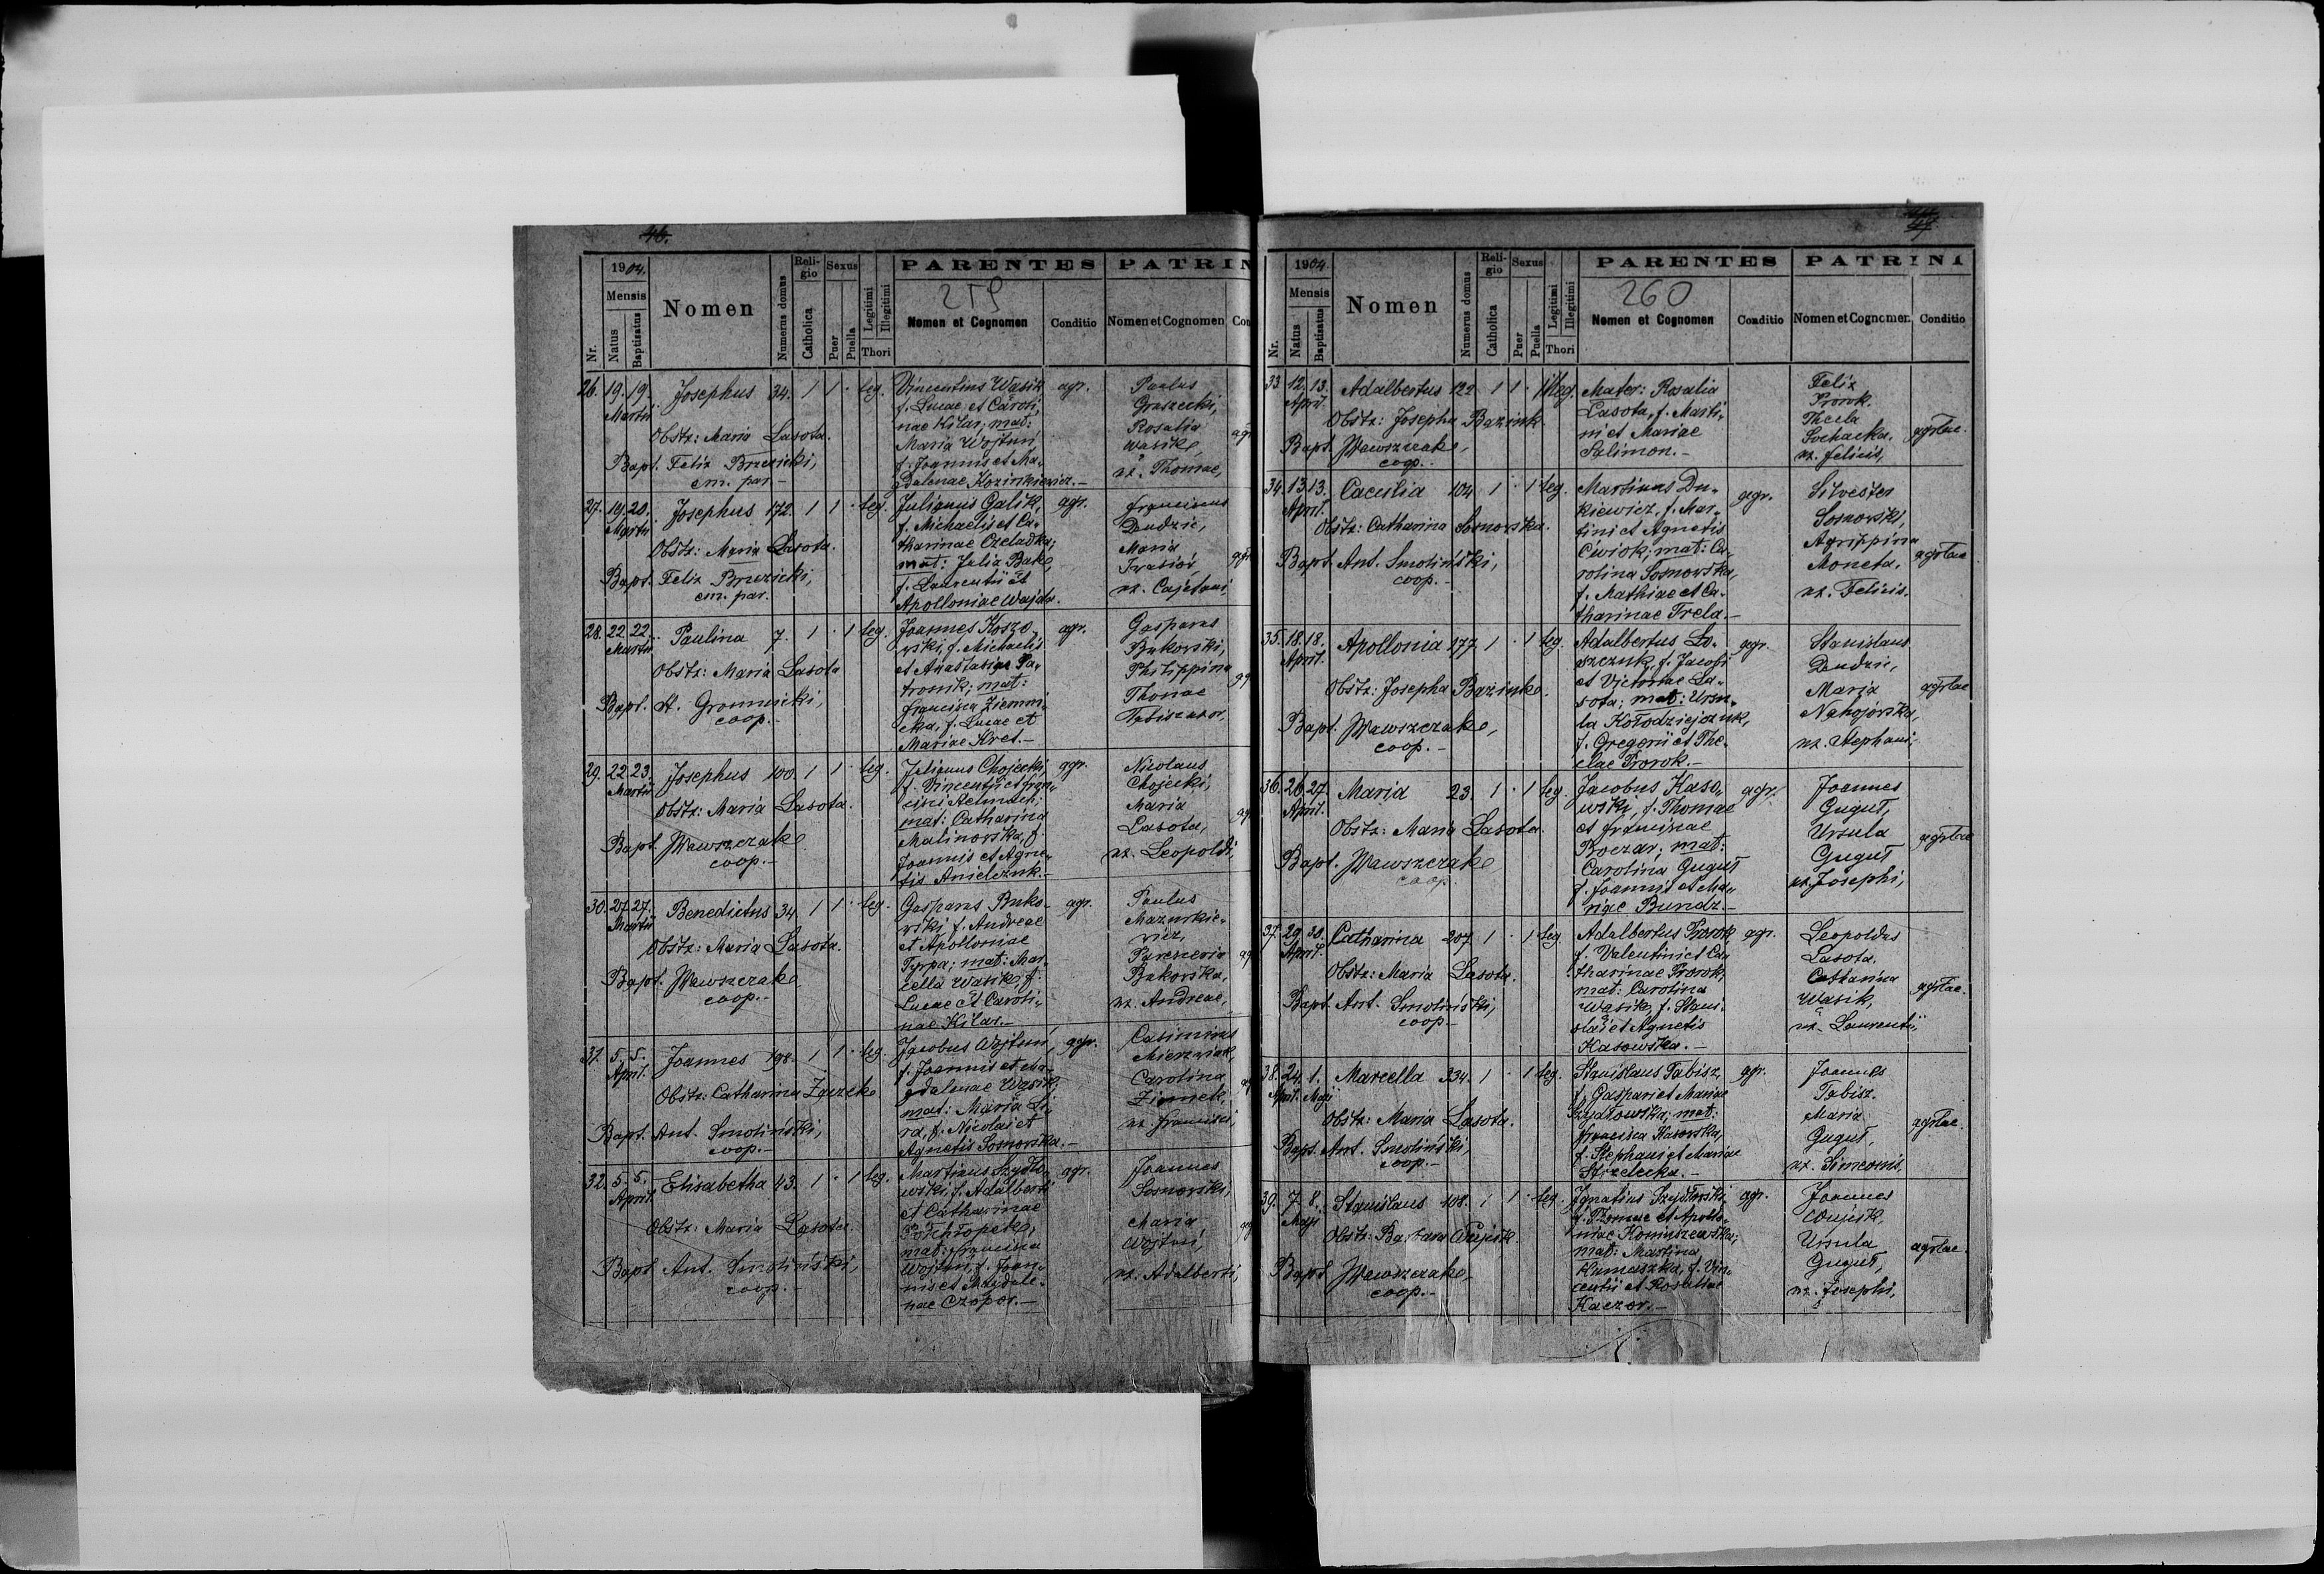 46.
1904.
Mensis
Nr.
Natus
Baptisatus
Nomen
Numerus domus
Religio
Catholica
Sexus
Puer
Puella
Legitimi
Illegitimi
Thori
PARENTES
259
Nomen et Cognomen
Conditio
PATRIN
Nomen et Cognomen
Con
26. 19. 19. Martii Josephus 34. 1 1 · leg.
Obstr: Maria Lasota.
Bapt. Felix Brzezicki,
em. par.-
Vincentius Wasik
f. Lucae et Caroli-
nae Kilar; mat:
Maria Wojtuń
f. Joannis et Ma-
gdalenae Kozinkiewicz.-
agr.
Paulus
Rosalia
Wasik,
ux. Thomae,
27. 19. 20. Martii Josephus 172. 1 1 · leg.
Obstr: Maria Lasota.
Bapt. Felix Brzezicki,
em. par.
Julianus Galik,
f. Michaelis et Ca-
tharinae Czeladka;
mat: Julia Bąk,
f. Laurentii et
Apolloniae Wajda.
agr.
Franciscus
Dudzic,
Maria
ux. Cajetani,
28. 22. 22. Martii Paulina 7. 1 · 1 leg.
Obstr: Maria Lasota
Bapt. A. Gromnicki,
coop.-
Joannes Koszo-
wski, f. Michaelis
et Anastasiae Pa-
tronik; mat:
Francisca Ziemni-
cka, f. Lucae et
Mariae Kret.-
agr.
Gasparus
Bukowski,
Philippina
Thomae
29. 22. 23. Martii Josephus 100. 1 1 · leg.
Obstr: Maria Lasota.
Bapt. J. Wawszczak
coop.-
Julianus Chojecki,
f. Vincentii et Fran-
mat: Catharina
Malinowska, f.
Joannis et Agne-
tis Anielczuk.-
agr.
Nicolaus
Chojecki,
Maria
Lasota,
ux. Leopoldi,
30. 27. 27. Martii Benedictus 34. 1 1 · leg.
Obstr: Maria Lasota.
Bapt. J. Wawszczak
coop.-
Gasparus Buko-
wski, f. Andreae
et Apolloniae
Tyrpa; mat: Mar-
cella Wasik, f.
Lucae et Caroli-
nae Kilar.-
agr.
Paulus
Mazurkie-
wicz,
Bukowska,
ux. Andreae,
31. 5. 5. April. Joannes 198. 1 1 · leg.
Obstr: Catharina
Bapt. Ant. Smoliński,
coop.-
Jacobus Wojtuń,
f. Joannis et Ma-
gdalenae Wasik;
mat: Maria Li-
ra, f. Nicolai et
Agnetis Sosnowska.-
agr.
Casimirus
Mierzwiak,
Carolina
Zimek,
ux. Francisci,
32. 5. 5. April. Elisabetha 43. 1 · 1 leg.
Obstr: Maria Lasota.
Bapt. Ant. Smoliński,
coop.-
Martinus Szydło-
wski, f. Adalberti
et Catharinae
Półchłopek,
mat: Francisca
Wojtuń, f. Joan-
nis et Magdale-
nae Czopor.-
agr.
Joannes
Sosnowski,
Maria
Wojtuń,
ux. Adalberti,
47
1904
Mensis
Nr.
Natus
Baptisatus
Nomen
Numerus domus
Religio
Catholica
Sexus
Puer
Puella
Legitimi
Illegitimi
Thori
PARENTES
260
Nomen et Cognomen
Conditio
PATRINI
Nomen et Cognomen.
Conditio
33. 12. 13. April. Adalbertus 122 1 1 · illeg.
Obstr: Josepha Bazink
Bapt. J. Wawszczak,
coop.-
Mater: Rosalia
Lasota, f. Marti-
ni et Mariae
Salimon.-
Felix
Prorok.
Thecla
Sochacka.
ux. Felicis,
agrlae.
34. 13. 13. April. Caecilia 104 1 · 1 leg.
Obstr: Catharina Sosnowska.
Bapt. Ant. Smoliński,
coop.-
Martinus Du-
kiewicz, f. Mar-
tini et Agnetis
Ćwiok; mat: Ca-
rolina Sosnowska,
f. Mathiae et Ca-
tharinae Trela.-
agr.
Silvester
Sosnowski,
Agrippina
Moneta.
ux. Felicis.
agrlae
35. 18. 18. April. Apollonia 177. 1 · 1 leg.
Obstr: Josepha Bazink.
Bapt. J. Wawszczak,
coop.-
Adalbertus Lo-
szczuk, f. Jacobi
et Victoriae La-
sota; mat: Ursu-
la Kołodziejczuk,
f. Gregorii et The-
clae Prorok.-
agr.
Stanislaus
Dudzic,
Maria
Nahojowska,
ux. Stephani,
agrlae
36. 26. 27. April. Maria 23. 1 · 1 leg.
Obstr: Maria Lasota.
Bapt. J. Wawszczak
coop.
Jacobus Kaso-
wski, f. Thomae
et Franciscae
Boczar; mat:
Carolina Guguł
f. Joannis et Ma-
riae Bundz.-
agr.
Joannes
Guguł,
Ursula
Guguł
ux. Josephi,
agrlae
37. 29. 30. April. Catharina 207 1 · 1 leg.
Obstr: Maria Lasota.
Bapt. Ant. Smoliński,
coop.-
Adalbertus Prorok,
f. Valentini et Ca-
tharinae Prorok,
mat: Carolina
Wasik, f. Stani-
slai et Agnetis
Kasowska.-
agr.
Leopoldus
Lasota.
Catharina
Wasik,
ux. Laurentii,
agrlae.
38. 24. 1. April. Maji Marcella 334. 1 · 1 leg.
Obstr: Maria Lasota.
Bapt. Ant. Smoliński,
coop.-
Stanislaus Tabisz,
f. Gaspari et Mariae
Szydłowska; mat:
Francisca Kasowska,
f. Stephani et Mariae
Strzelecka.-
agr.
Joannes
Tabisz.
Maria
Guguł,
ux. Simeonis,
agrlae.
39. 7. 8. Maji Stanislaus 108. 1 1 · leg.
Obstr: Barbara Wujcik
Bapt. J. Wawszczak,
coop.-
Ignatius Szydłowski,
f. Thomae et Apollo-
niae Koniuszewska;
mat: Martina
Kumaszka, f. Vin-
centii et Rosaliae
Kaczor.-
agr.
Joannes
Wujcik,
Ursula
Guguł,
ux. Josephi,
agrlae.